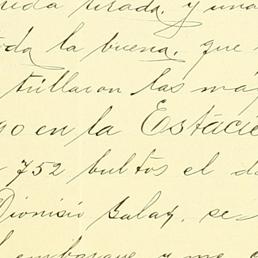 ida tirada, y una
da la buena, que
trillaron las má
go en la Estació
752 bultos el d
Dionisio Galaz, se
l embarque y me